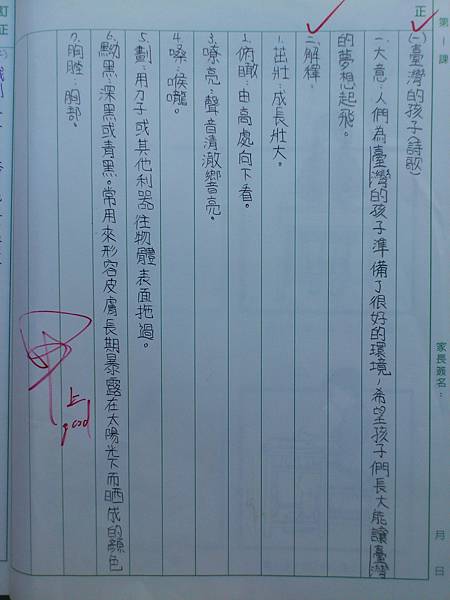 第1課
正
家長簽名：
月 日
(一)臺灣的孩子(詩歌)
一、大意：人們為臺灣的孩子準備了很好的環境，希望孩子們長大能讓臺灣
的夢想起飛。
二、解釋：
1. 茁壯：成長壯大。
2. 俯瞰：由高處向下看。
3. 嘹亮：聲音清澈響亮。
4. 嗓：喉嚨。
5. 劃：用刀子或其他利器往物體表面拖過。
6. 黝黑：深黑或青黑。常用來形容皮膚長期暴露在太陽光下而晒成的顏色
7. 胸膛：胸部。
甲上
good
訂正